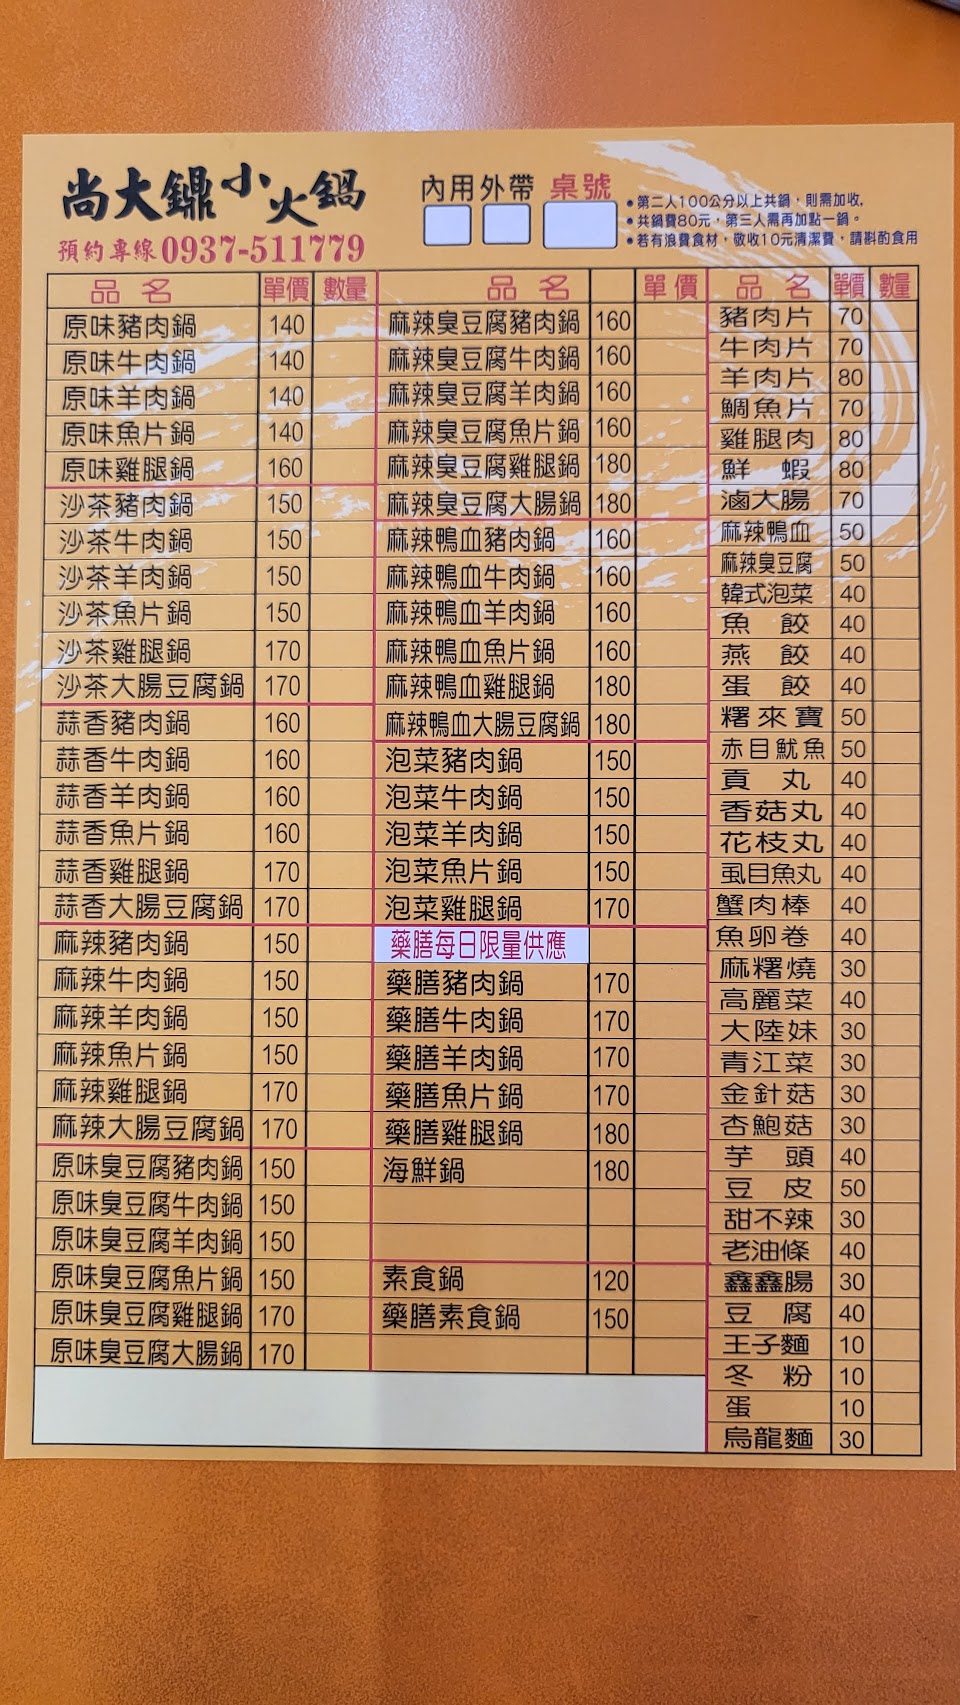 尚大鐤小火鍋
預約專線0937-511779
內用 外帶 桌號
•第二人100公分以上共鍋，則需加收.
•共鍋費80元，第三人需再加點一鍋。
•若有浪費食材，敬收10元清潔費，請斟酌食用
品名 單價 數量
原味豬肉鍋 140
原味牛肉鍋 140
原味羊肉鍋 140
原味魚片鍋 140
原味雞腿鍋 160
沙茶豬肉鍋 150
沙茶牛肉鍋 150
沙茶羊肉鍋 150
沙茶魚片鍋 150
沙茶雞腿鍋 170
沙茶大腸豆腐鍋 170
蒜香豬肉鍋 160
蒜香牛肉鍋 160
蒜香羊肉鍋 160
蒜香魚片鍋 160
蒜香雞腿鍋 170
蒜香大腸豆腐鍋 170
麻辣豬肉鍋 150
麻辣牛肉鍋 150
麻辣羊肉鍋 150
麻辣魚片鍋 150
麻辣雞腿鍋 170
麻辣大腸豆腐鍋 170
原味臭豆腐豬肉鍋 150
原味臭豆腐牛肉鍋 150
原味臭豆腐羊肉鍋 150
原味臭豆腐魚片鍋 150
原味臭豆腐雞腿鍋 170
原味臭豆腐大腸鍋 170
品名 單價
麻辣臭豆腐豬肉鍋 160
麻辣臭豆腐牛肉鍋 160
麻辣臭豆腐羊肉鍋 160
麻辣臭豆腐魚片鍋 160
麻辣臭豆腐雞腿鍋 180
麻辣臭豆腐大腸鍋 180
麻辣鴨血豬肉鍋 160
麻辣鴨血牛肉鍋 160
麻辣鴨血羊肉鍋 160
麻辣鴨血魚片鍋 160
麻辣鴨血雞腿鍋 180
麻辣鴨血大腸豆腐鍋 180
泡菜豬肉鍋 150
泡菜牛肉鍋 150
泡菜羊肉鍋 150
泡菜魚片鍋 150
泡菜雞腿鍋 170
藥膳每日限量供應
藥膳豬肉鍋 170
藥膳牛肉鍋 170
藥膳羊肉鍋 170
藥膳魚片鍋 170
藥膳雞腿鍋 180
海鮮鍋 180
素食鍋 120
藥膳素食鍋 150
品名 單價 數量
豬肉片 70
牛肉片 70
羊肉片 80
鯛魚片 70
雞腿肉 80
鮮蝦 80
滷大腸 70
麻辣鴨血 50
麻辣臭豆腐 50
韓式泡菜 40
魚餃 40
燕餃 40
蛋餃 40
糬來寶 50
赤目魷魚 50
貢丸 40
香菇丸 40
花枝丸 40
虱目魚丸 40
蟹肉棒 40
魚卵卷 40
麻糬燒 30
高麗菜 40
大陸妹 30
青江菜 30
金針菇 30
杏鮑菇 30
芋頭 40
豆皮 50
甜不辣 30
老油條 40
鑫鑫腸 30
豆腐 40
王子麵 10
冬粉 10
蛋 10
烏龍麵 30